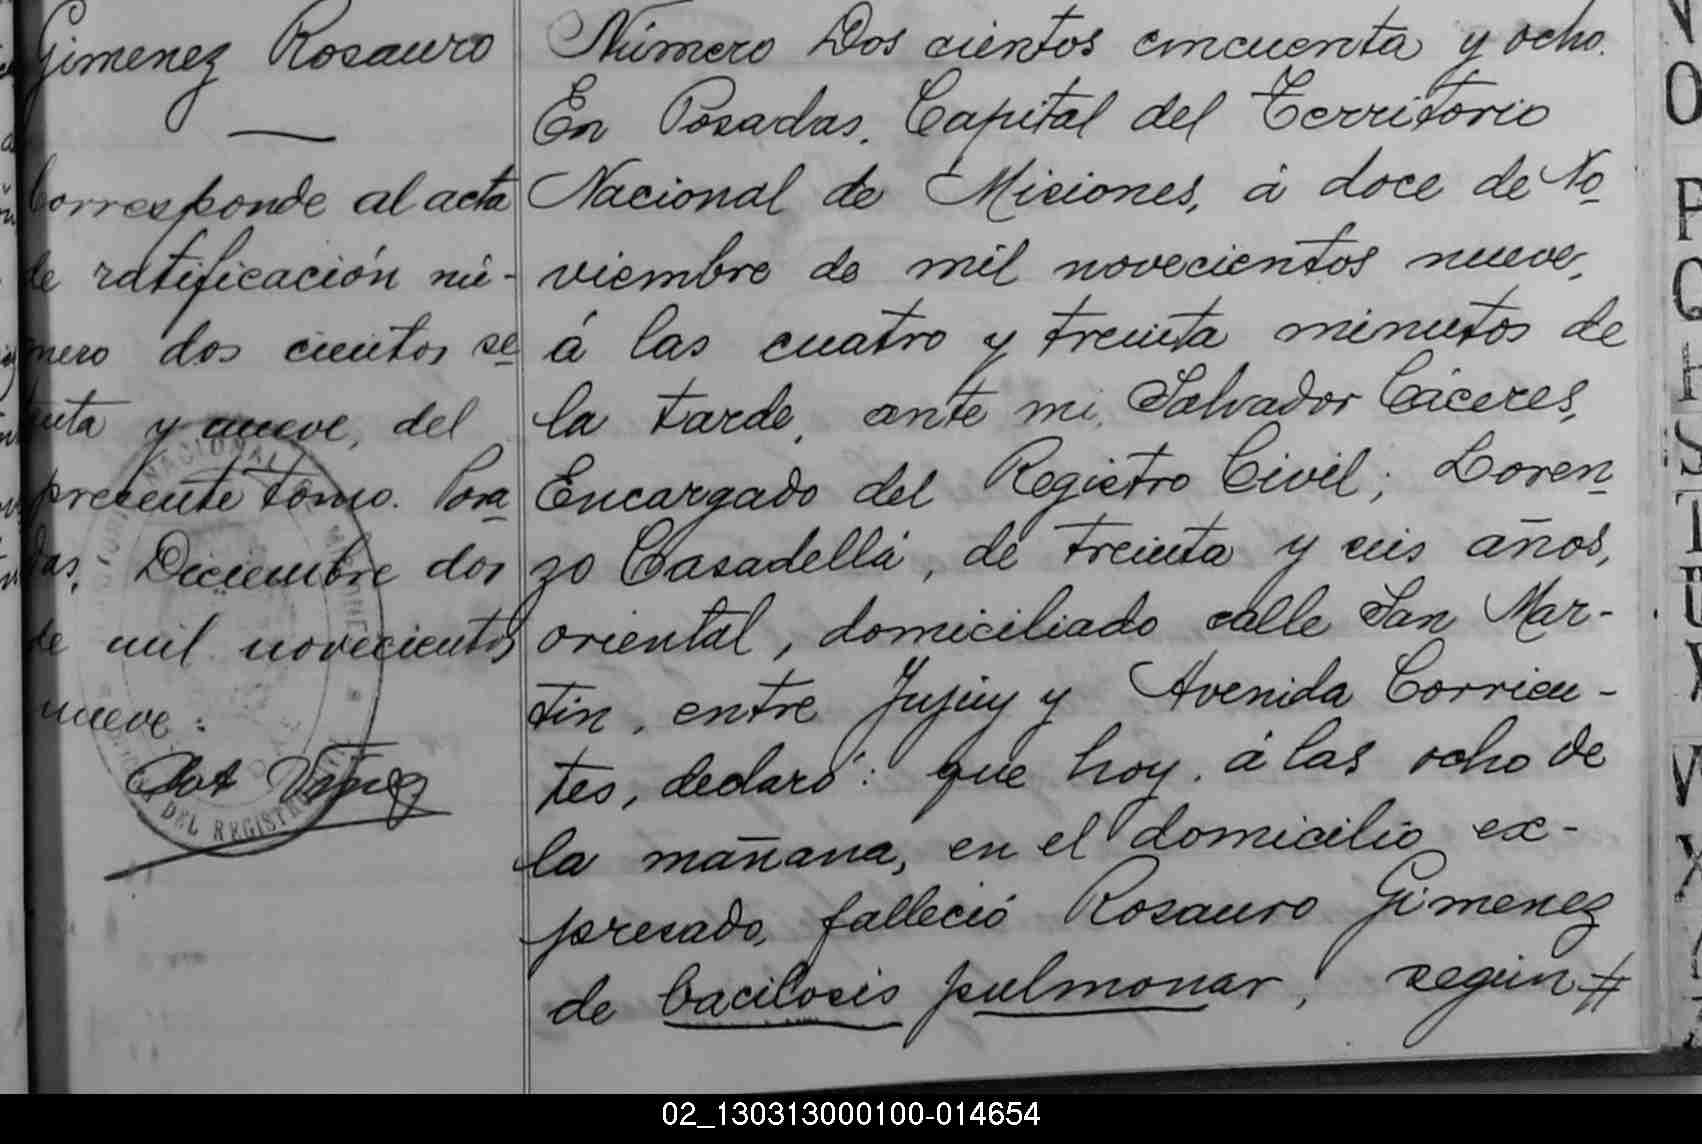 Gimenez Rosauro
Corresponde al acta
de ratificación nú-
mero dos cientos se
tenta y nueve, del
presente tomo. Posa
das, Diciembre dos
de mil novecientos
nueve:
Número Dos cientos cincuenta y ocho.
En Posadas, Capital del Territorio
Nacional de Misiones, á doce de No
viembre de mil novecientos nueve,
á las cuatro y treinta minutos de
la tarde, ante mi, Salvador Cáceres,
Encargado del Registro Civil; Loren
zo Casadellá, de treinta y seis años,
oriental, domiciliado calle San Mar-
tin, entre Jujuy y Avenida Corrien-
tes, declaró: que hoy, á las ocho de
la mañana, en el domicilio ex-
presado, falleció Rosauro Gimenez
de bacilosis pulmonar, según
02_130313000100-014654